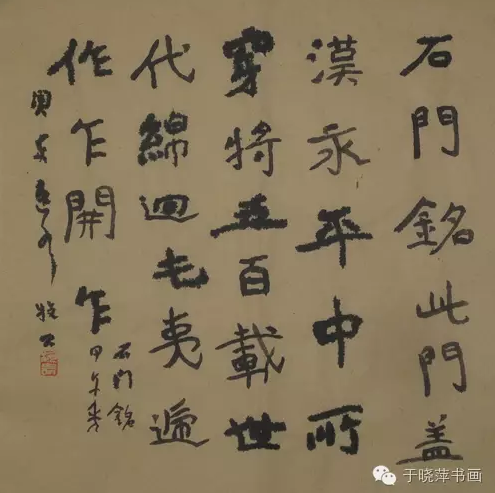 石門銘此門盖
漢永平中所
穿將五百載世
代綿迴屯夷遞
作乍開乍
石门銘
甲午
于晓萍书画